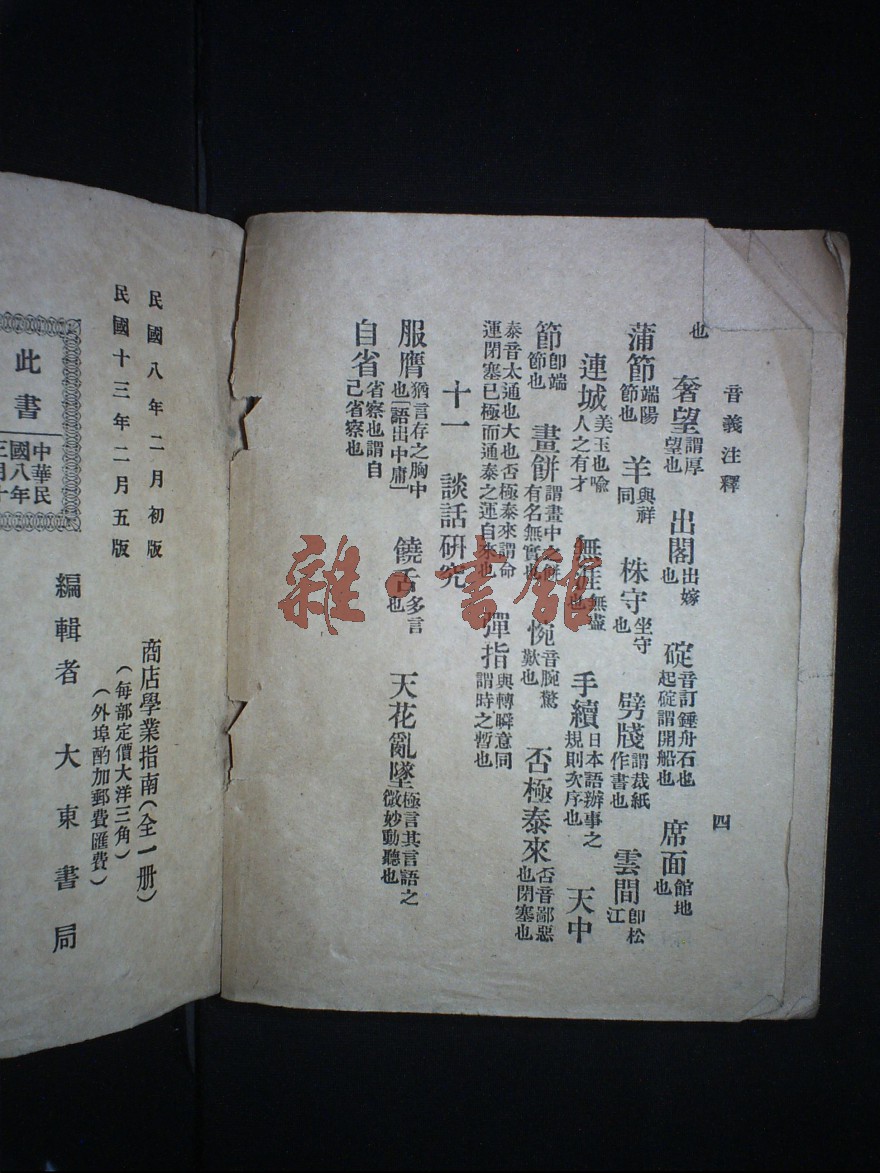 音義注釋 四
也 奢望謂厚望也 出閣出嫁也 碇音訂錘舟石也起碇謂開船也 席面館地也
蒲節端陽節也 羊與祥同 株守坐守也 劈牋謂裁紙作書也 雲間卽松江
連城美玉也喻人之有才 無涯無盡也 手續日本語辦事之規則次序也 天中
節卽端節也 畫餅謂畫中之餅有名無實也 惋音腕驚歎也 否極泰來否音鄙惡也閉塞也
泰音太通也大也否極泰來謂命運閉塞已極而通泰之運自來也 彈指與轉瞬意同謂時之暫也
十一 談話研究
服膺猶言存之胸中也「語出中庸」 饒舌多言也 天花亂墜極言其言語之微妙動聽也
自省省察也謂自己省察也
民國八年二月初版
民國十三年二月五版
商店學業指南(全一册)
(每部定價大洋三角)
(外埠酌加郵費匯費)
編輯者 大東書局
此書
中華民
國八年
雜·書館